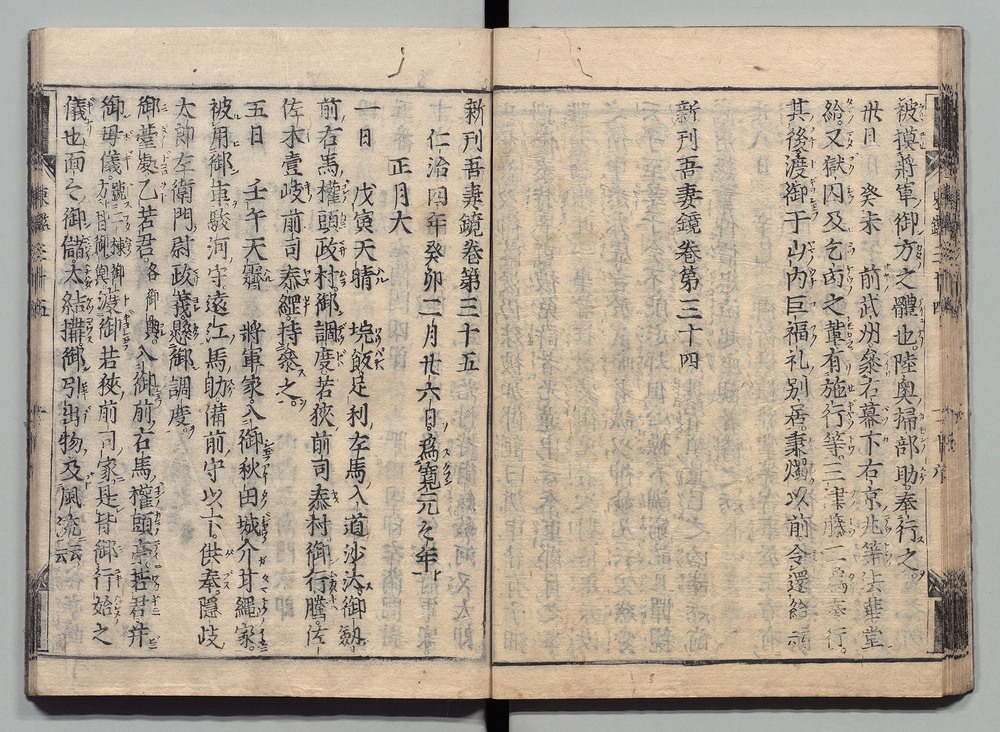 被摸將軍御方之體也。陸奥掃部助。奉行之。
卅日 癸未 前武州參右幕下右京兆等法華堂
給又獄囚及乞丐之輩有施行等三津藤二爲奉行。
其後渡御于山内巨福礼別居秉燭以前令還給云云
新刊吾妻鏡卷第三十四
新刊吾妻鏡卷第三十五
仁治四年癸卯二月廿六日爲寛元々年
正月大
一日 戊寅天晴 垸飯足利左馬入道沙汰御劒
前右馬權頭政村御調度若狹前司泰村御行騰佐
佐木壹岐前司泰經持參之。
五日 壬午天霽 將軍家入御秋田城介甘繩家。
被用御車駿河守遠江馬助備前守以下。供奉隱岐
太郎左衛門尉政義懸御調度。
御臺處乙若君。各御輿入御前右馬權頭亭若君并
御母儀號二棟御方。廿日御輿渡御若狹前司家是皆御行始之
儀也面々御儲。太結攝御引出物及風流云云
東鑑卷卅四
東鑑卷卅五